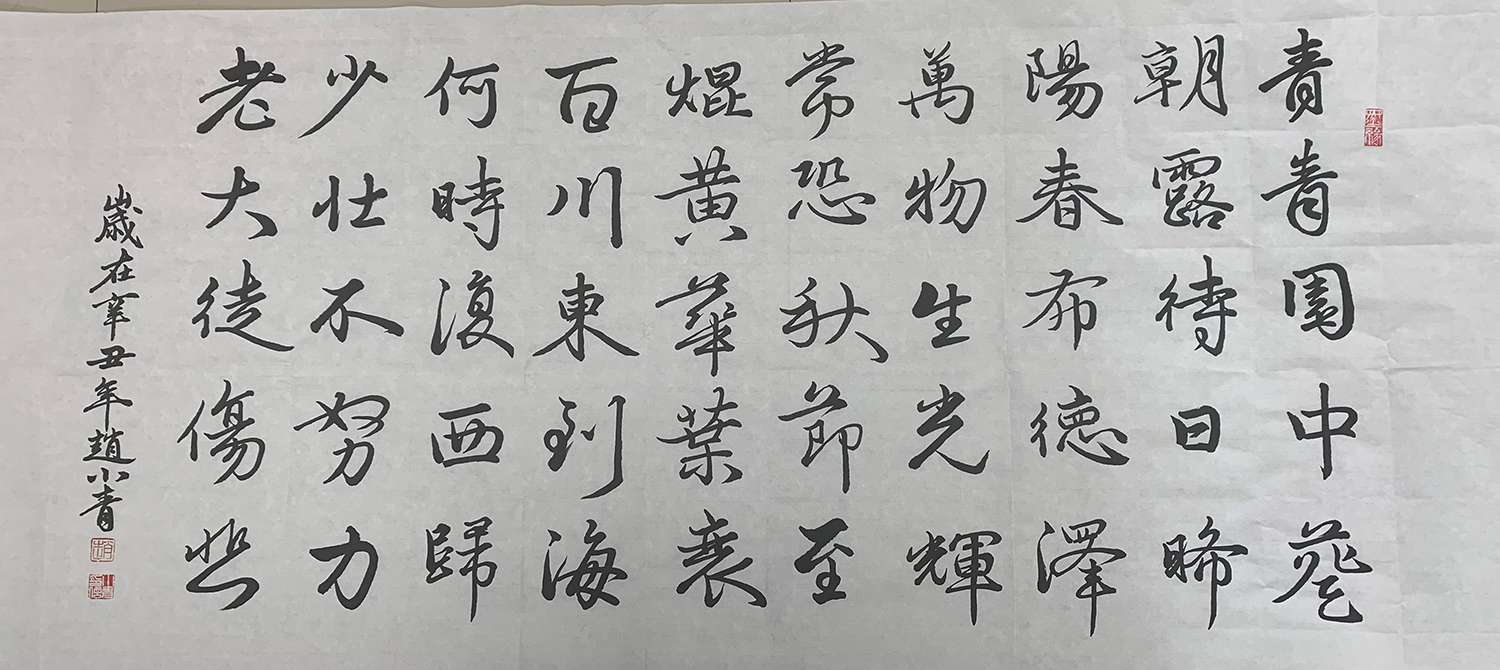 青青園中葵
朝露待日晞
陽春布德澤
萬物生光輝
常恐秋節至
焜黄華葉衰
百川東到海
何時復西歸
少壯不努力
老大徒傷悲
歲在辛丑年趙小青